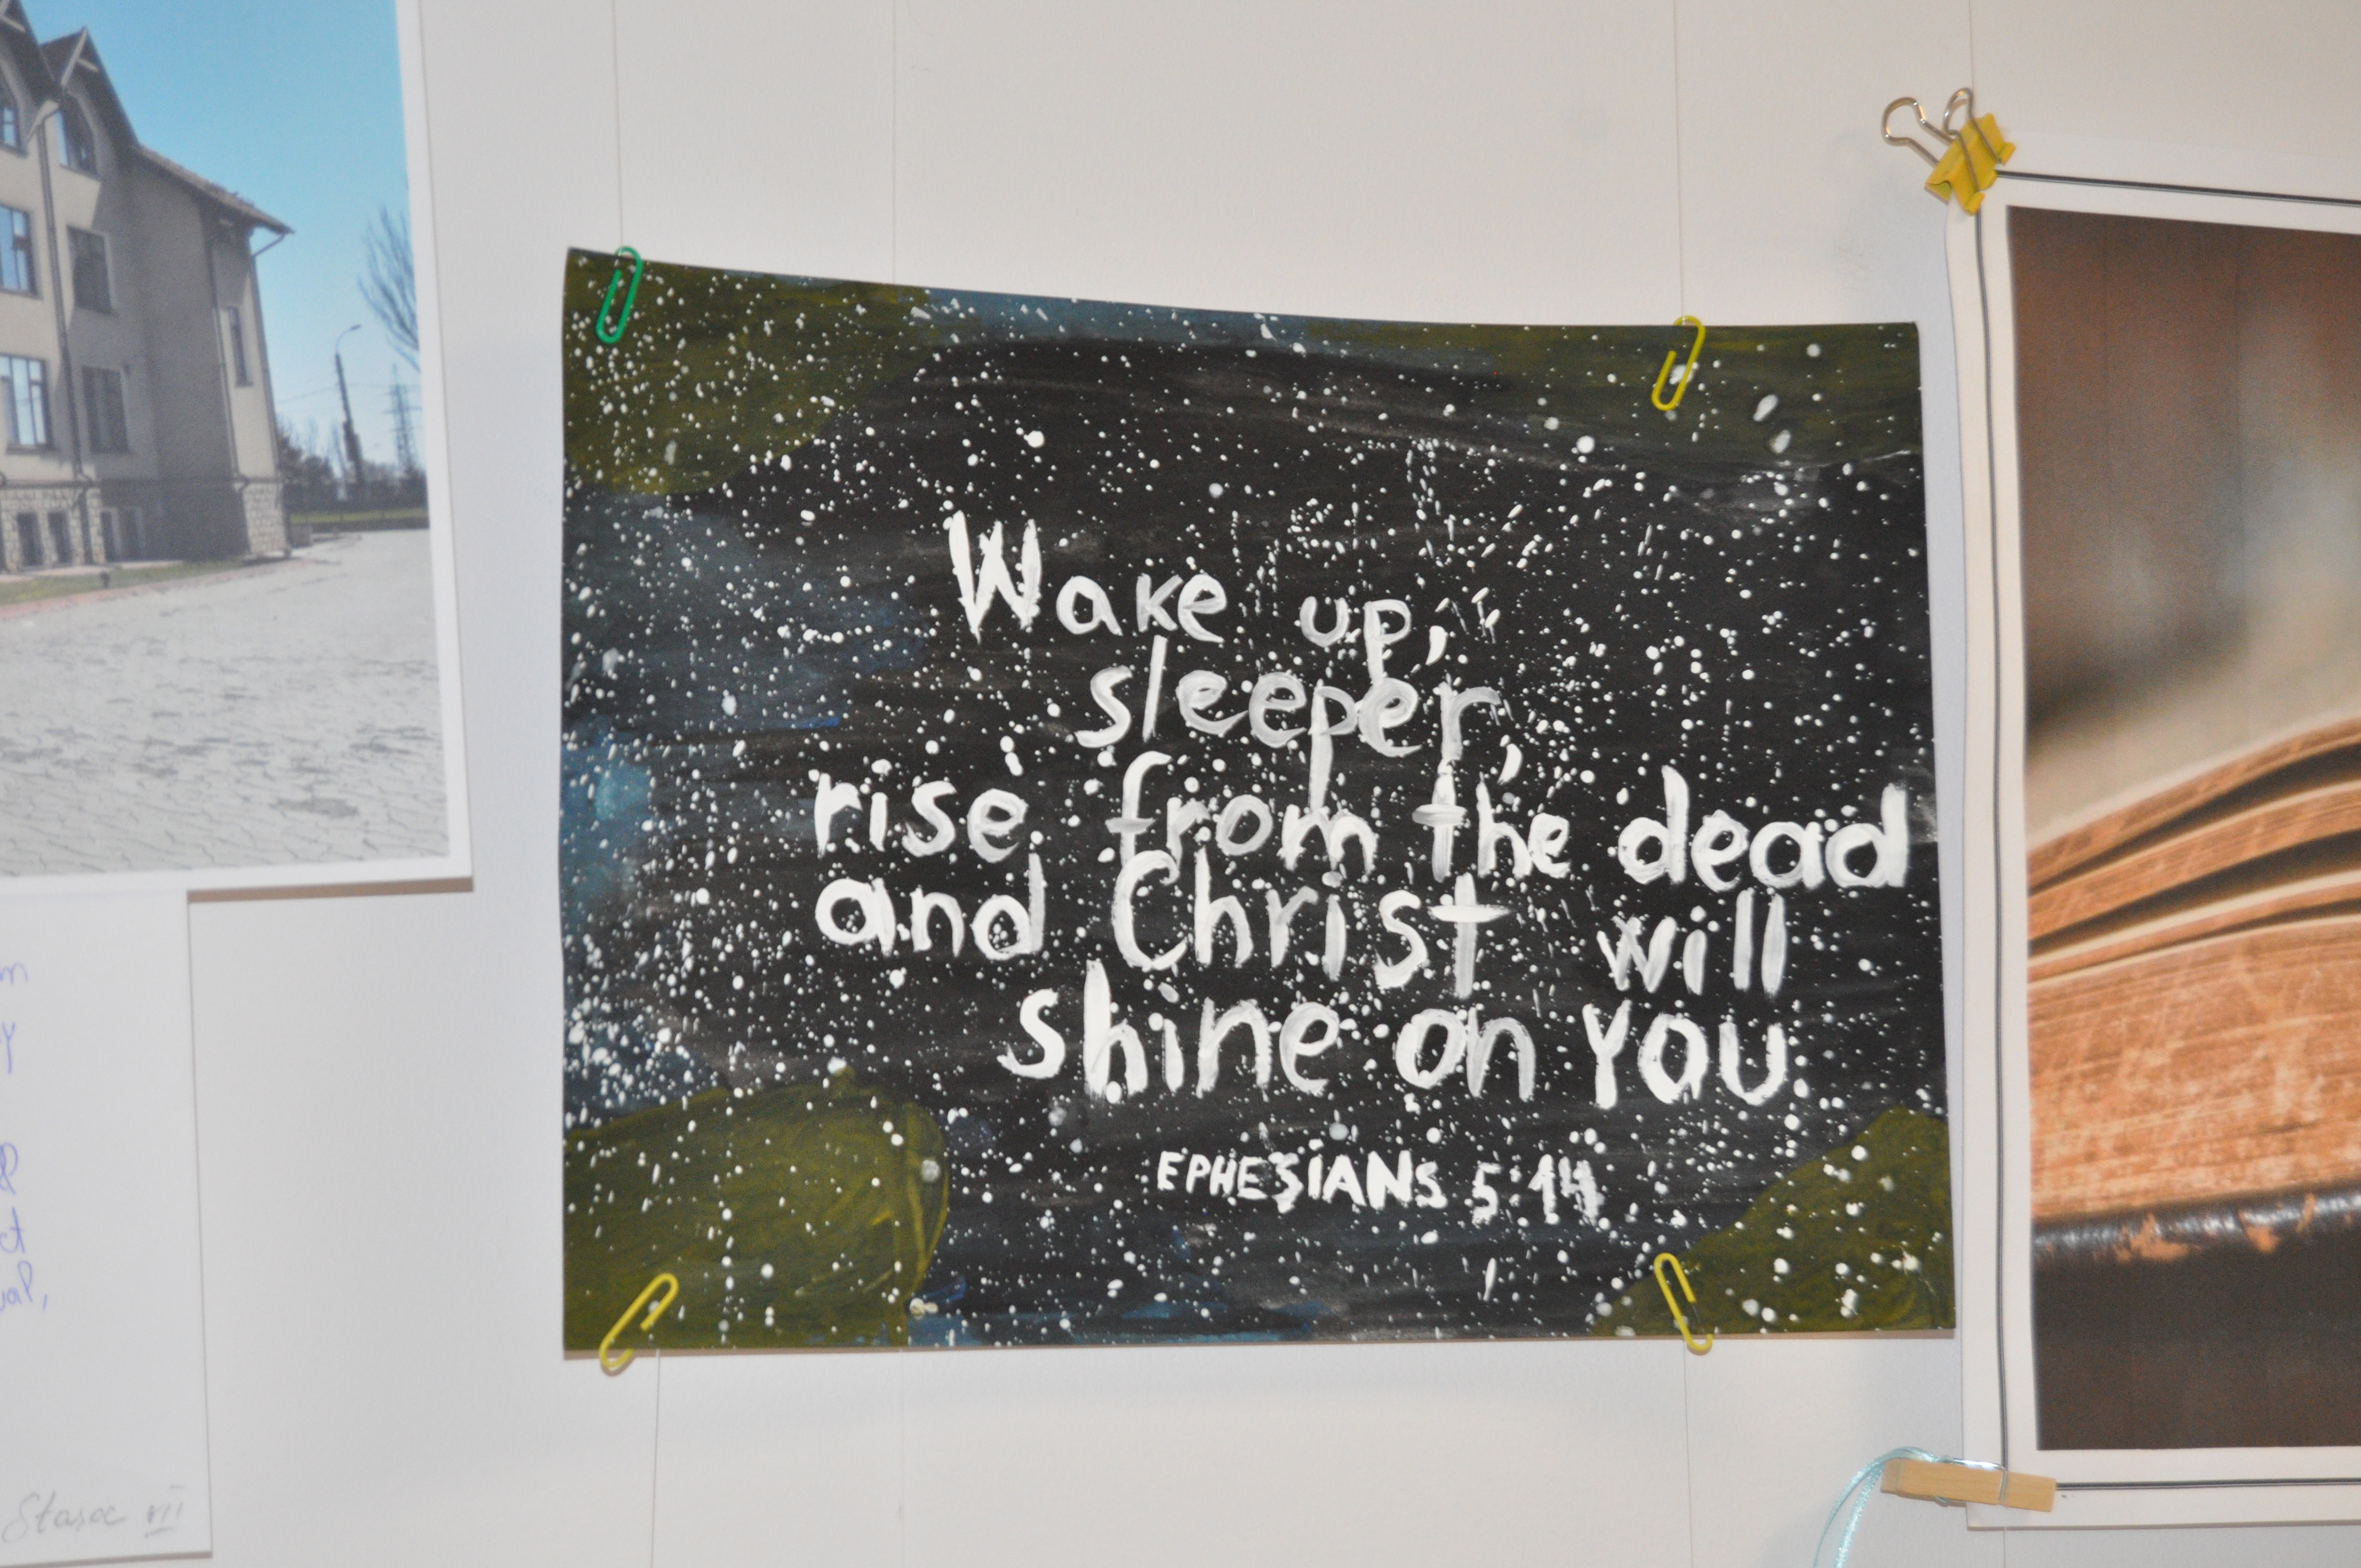 Wake up,
sleeper,
rise from the dead
and Christ will
shine on you
EPHESIANS 5:14